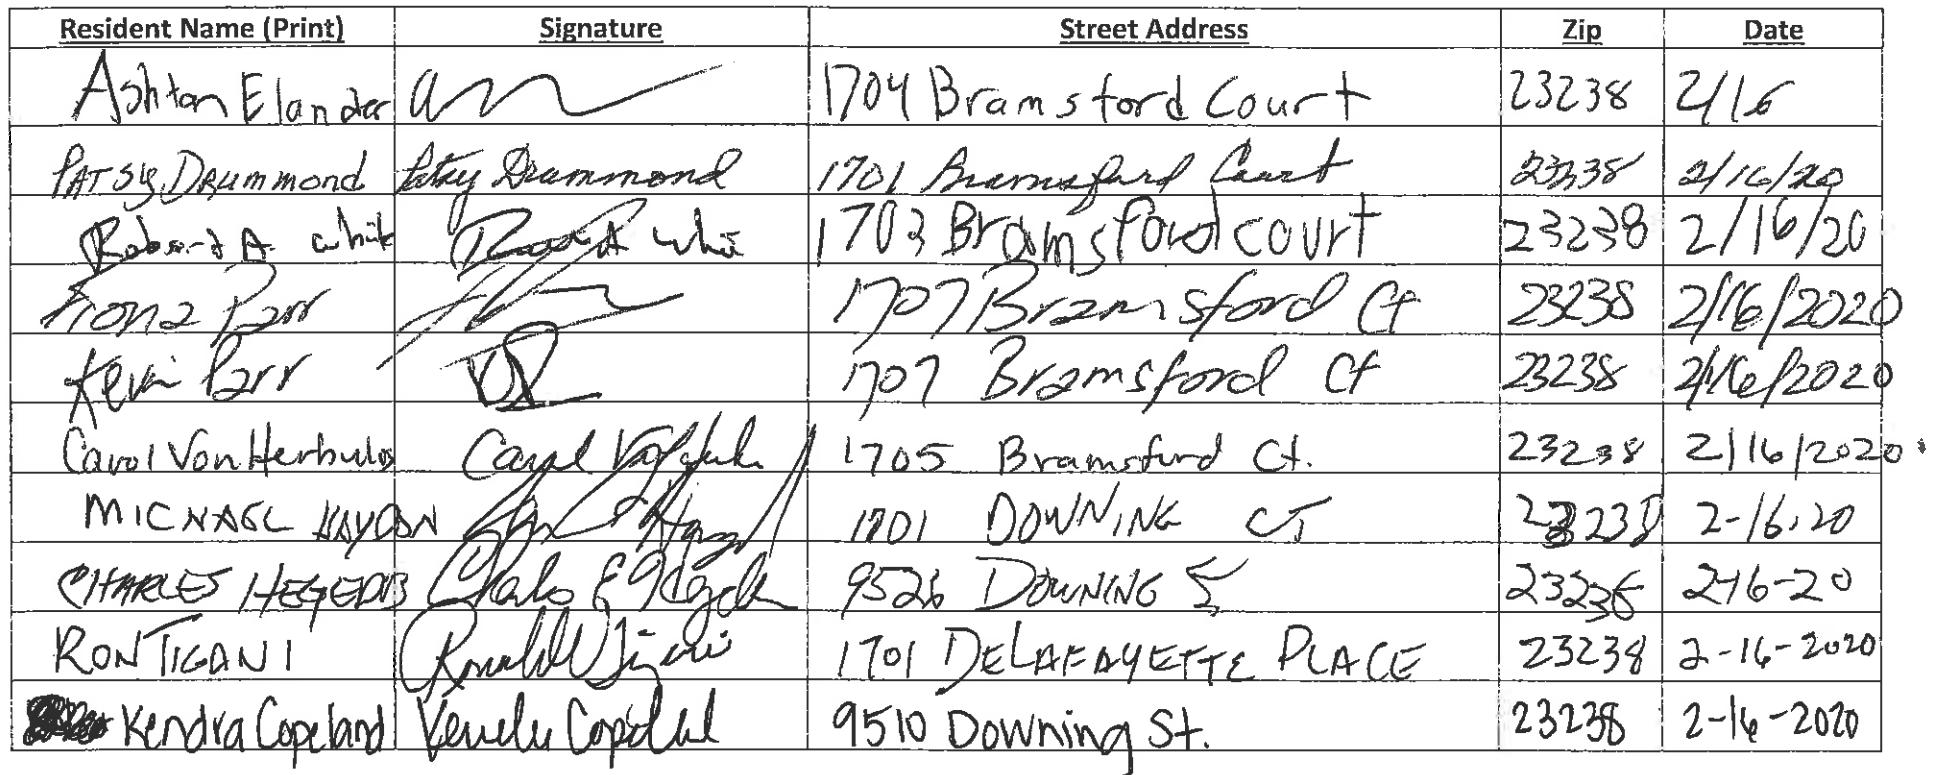 Resident Name (Print) Signature Street Address Zip Date
Ashton Elander 1704 Bramsford Court 23238 2/16
PATSY DRUMMOND Patsy Drummond 1701 Bramsford Court 23238 2/16/20
Robert A white 1703 Bramsford court 23238 2/16/20
Fiona Parr 1707 Bramsford Ct 23238 2/16/2020
Kevin Parr 1707 Bramsford Ct 23238 2/16/2020
Carol VonHerbulis Carol 1705 Bramsford Ct. 23238 2/16/2020
MICHAEL HAYDON 1701 DOWNING CT 23238 2-16.20
CHARLES HEGEDUS Charles E Hegedus 9526 DOWNING St 23238 2-16-20
RON TIGANI Ronald Tigani 1701 DELAFAYETTE PLACE 23238 2-16-2020
Kendra Copeland Kendra Copeland 9510 Downing St. 23238 2-16-2020